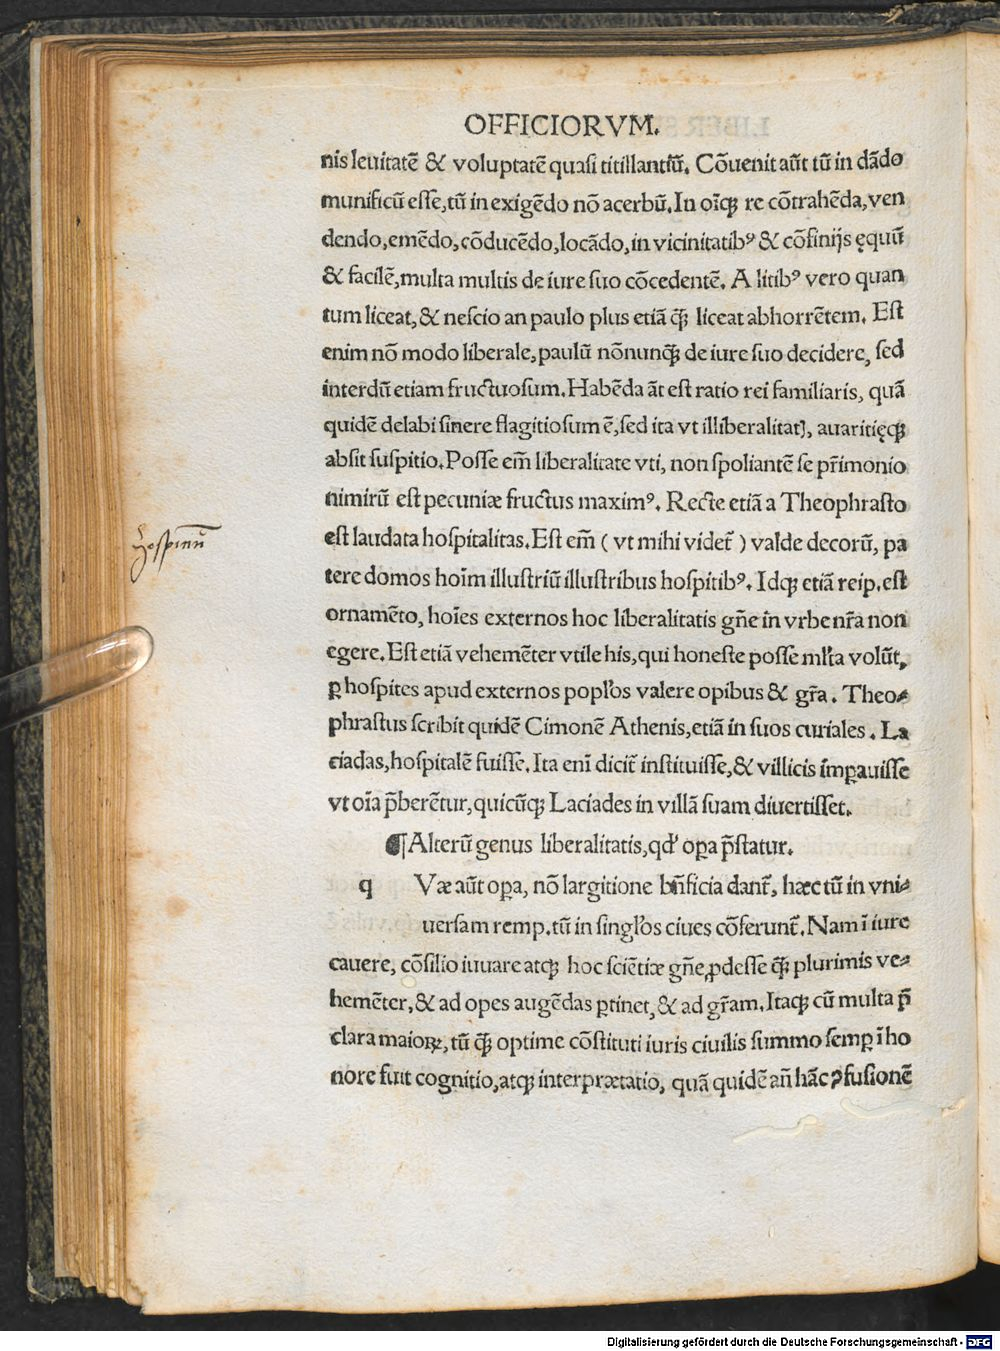 OFFICIORVM.
nis leuitatē & voluptatē quasi titillantiū. Cōuenit aūt tū in dādo
munificū esse, tū in exigēdo nō acerbū. In oīqꝫ re cōtrahēda, ven
dendo, emēdo, cōducēdo, locādo, in vicinitatibꝰ & cōfinijs ęquū
& facilē, multa multis de iure suo cōcedentē. A litibꝰ vero quan
tum liceat, & nescio an paulo plus etiā qꝫ̄ liceat abhorrētem. Est
enim nō modo liberale, paulū nōnunqꝫ̄ de iure suo decidere, sed
interdū etiam fructuosum. Habēda āt est ratio rei familiaris, quā
quidē delabi sinere flagitiosum ē, sed ita vt illiberalitatꝭ, auaritięqꝫ
absit suspitio. Posse em̄ liberalitate vti, non spoliantē se pr̄imonio
nimirū est pecuniæ fructus maximꝰ. Recte etiā a Theophrasto
est laudata hospitalitas. Est em̄ ( vt mihi videt̄ ) valde decorū, pa
tere domos hoīm illustriū illustribus hospitibꝰ. Idqꝫ etiā reip. est
ornamēto, hoīes externos hoc liberalitatis gn̄e in vrbe nr̄a non
egere. Est etiā vehemēter vtile his, qui honeste posse ml̄ta volūt,
ꝑ hospites apud externos popl̄os valere opibus & gr̄a. Theo-
phrastus scribit quidē Cimonē Athenis, etiā in suos curiales. La
ciadas, hospitalē fuisse. Ita enī dicit̄ instituisse, & villicis imꝑauisse
vt oīa p̄berētur, quicūqꝫ Laciades in villā suam diuertisset.
¶ Alterū genus liberalitatis, qd̄ oꝑa p̄statur.
q Væ aūt oꝑa, nō largitione bn̄ficia dant̄, hæc tū in vni-
uersam remp. tū in singl̄os ciues cōferunt̄. Nam ī iure
cauere, cōsilio iuuare atqꝫ hoc sciētiæ gn̄e ꝓdesse qꝫ̄ plurimis ve-
hemēter, & ad opes augēdas ꝑtinet, & ad gr̄am. Itaqꝫ cū multa p̄
clara maioꝝ, tū qꝫ̄ optime cōstituti iuris ciuilis summo semꝑ ī ho
nore fuit cognitio, atqꝫ interprætatio, quā quidē an̄ hāc ꝯfusionē
Digitalisierung gefördert durch die Deutsche Forschungsgemeinschaft - DFG